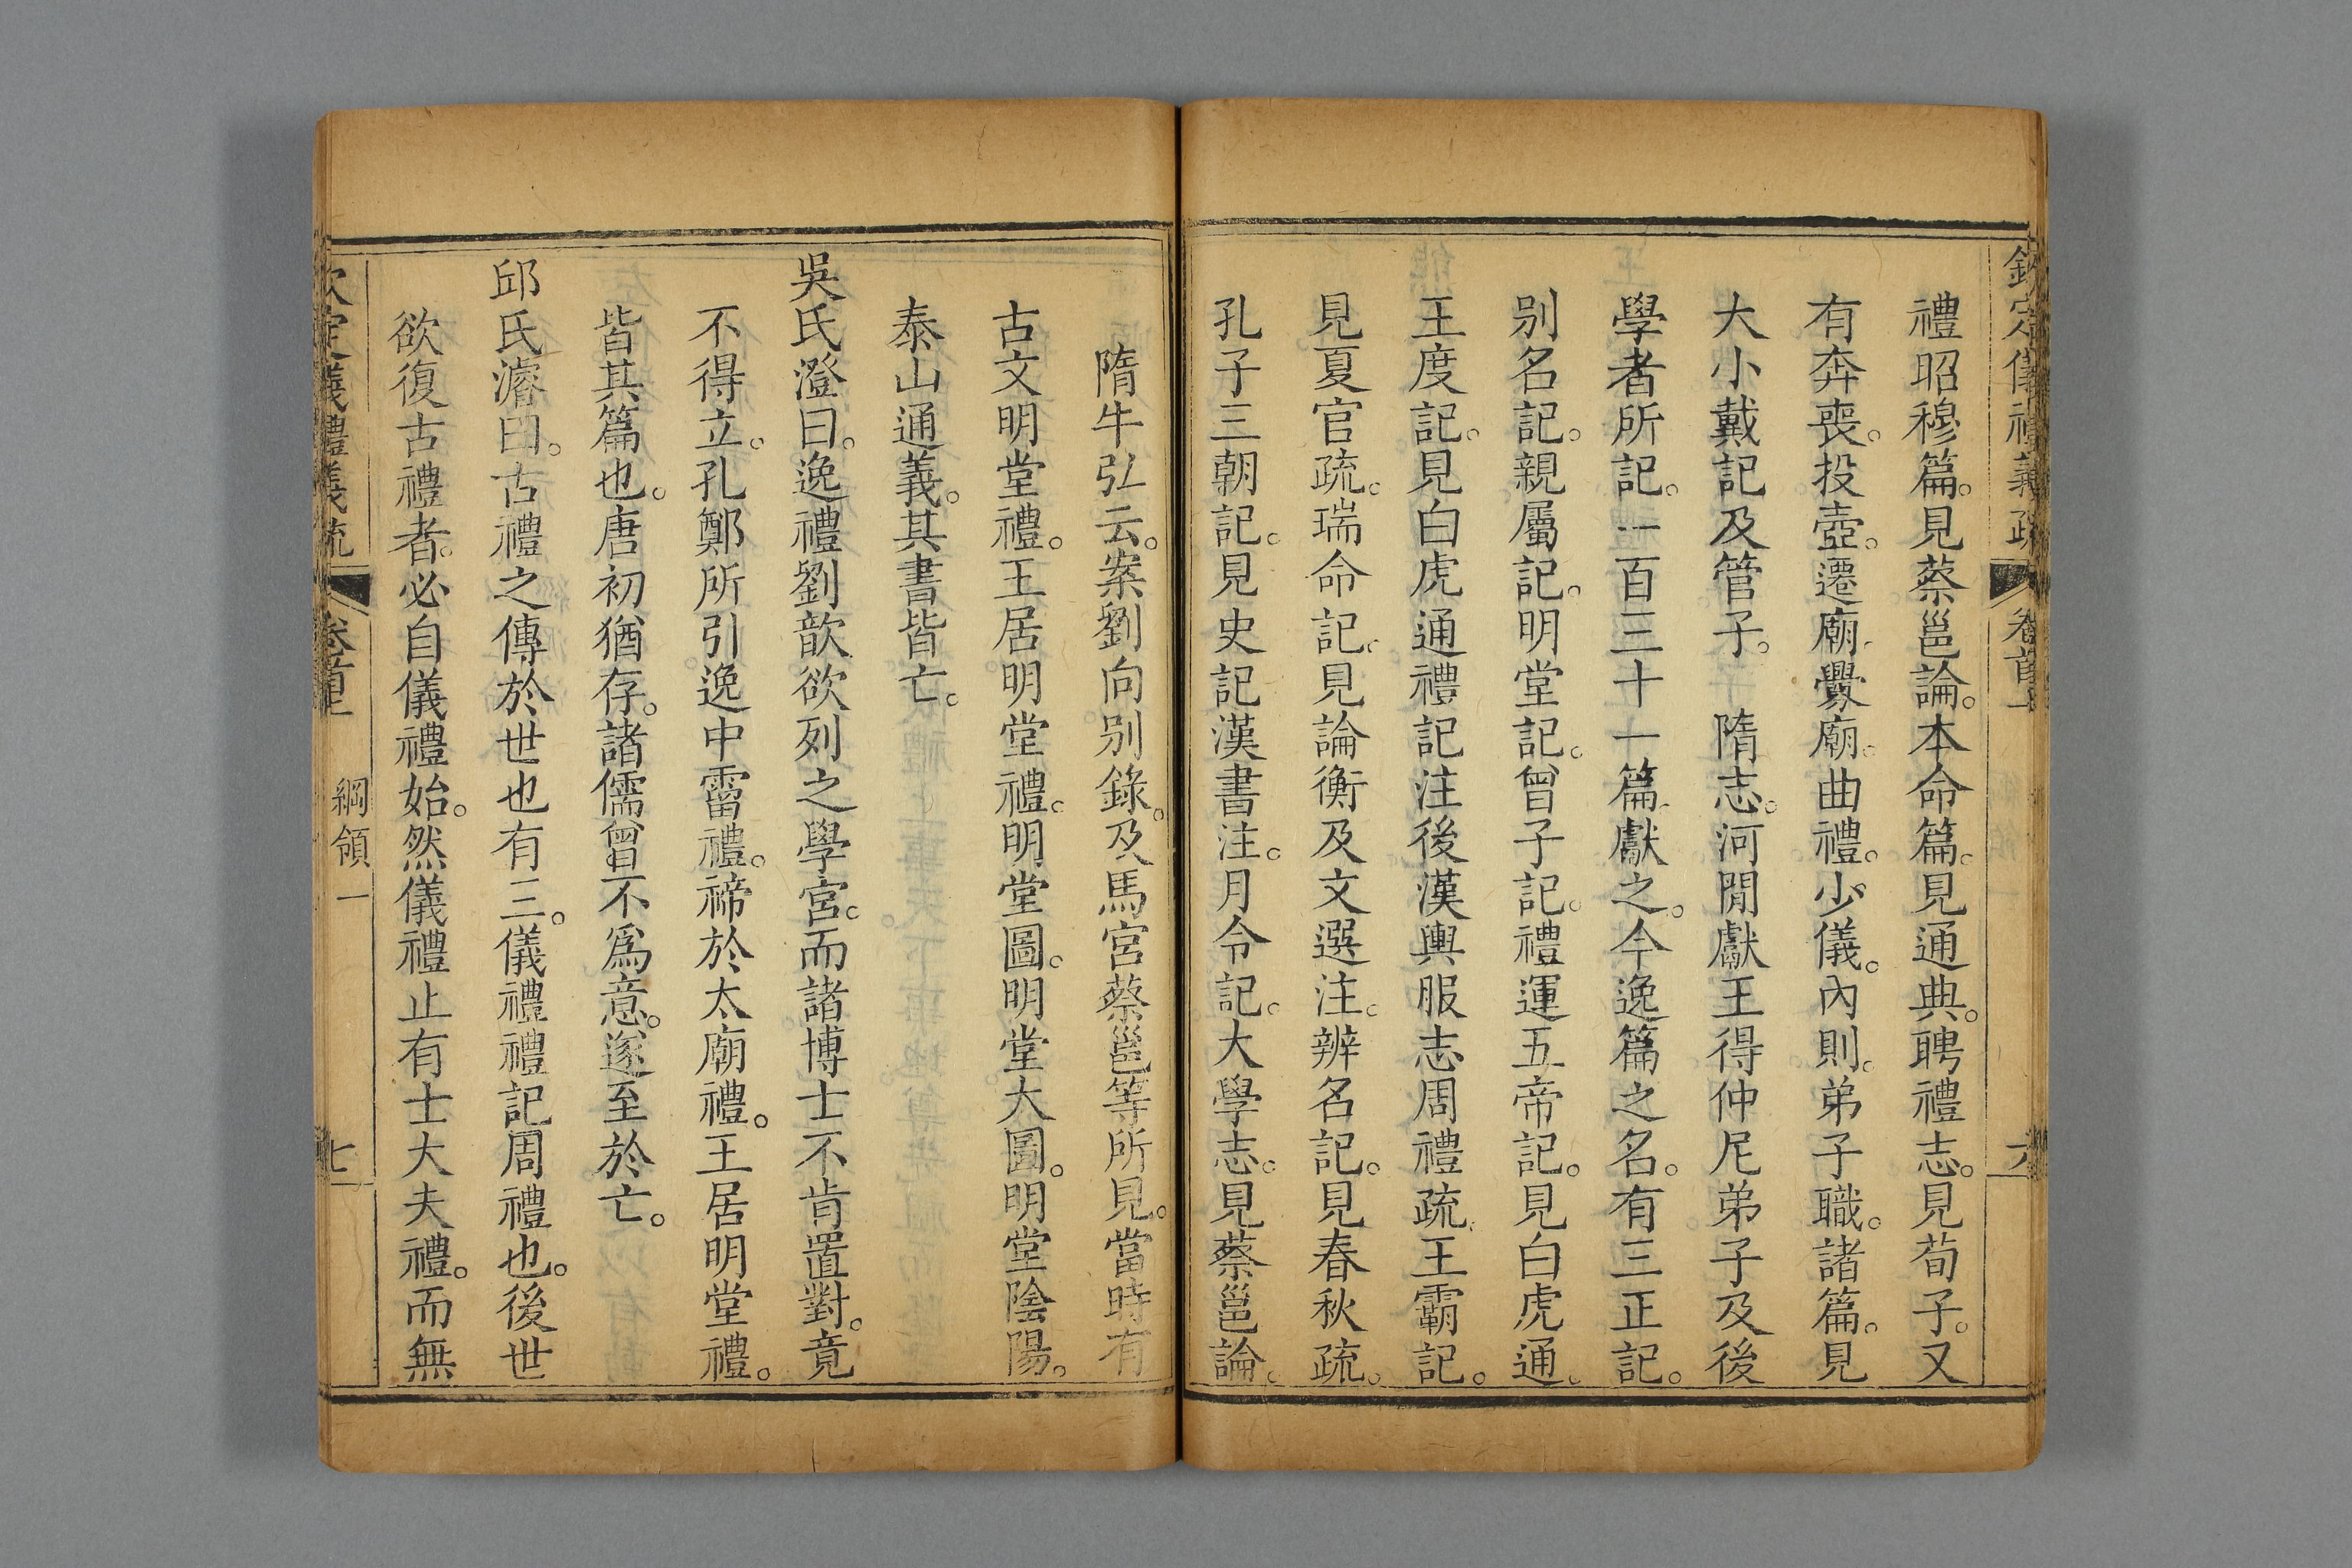 欽定儀禮義疏 卷首上 六
禮昭穆篇。見蔡邕論。本命篇。見通典。聘禮志。見荀子。又
有奔喪。投壺。遷廟。釁廟。曲禮。少儀。內則。弟子職。諸篇。見
大小戴記及管子。 隋志。河閒獻王得仲尼弟子及後
學者所記。一百三十一篇。獻之。今逸篇之名。有三正記。
别名記。親屬記。明堂記。曾子記。禮運五帝記。見白虎通。
王度記。見白虎通禮記注後漢輿服志周禮疏。王霸記。
見夏官疏。瑞命記。見論衡及文選注。辨名記。見春秋疏。
孔子三朝記。見史記漢書注。月令記。大學志。見蔡邕論。
隋牛弘云。案劉向别錄。及馬宮蔡邕等所見。當時有
古文明堂禮。王居明堂禮。明堂圖。明堂大圖。明堂陰陽。
泰山通義。其書皆亡。
吳氏澄曰。逸禮劉歆欲列之學宮。而諸博士不肯置對。竟
不得立。孔鄭所引逸中霤禮。禘於太廟禮。王居明堂禮。
皆其篇也。唐初猶存。諸儒曾不爲意。遂至於亡。
邱氏濬曰。古禮之傳於世也有三。儀禮禮記周禮也。後世
欲復古禮者。必自儀禮始。然儀禮止有士大夫禮。而無
欽定儀禮義疏 卷首上 綱領一 七